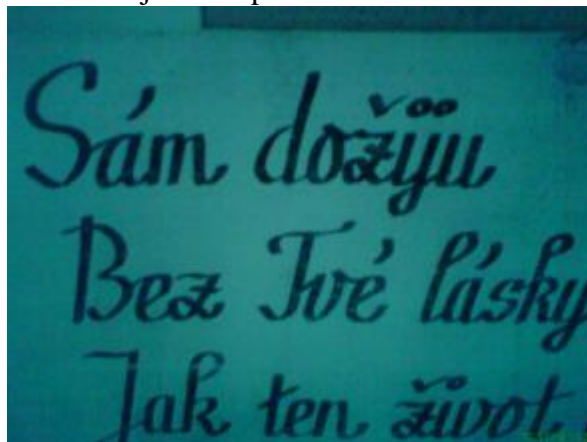 Sám dožiju
Bez Tvé lásky
Jak ten život